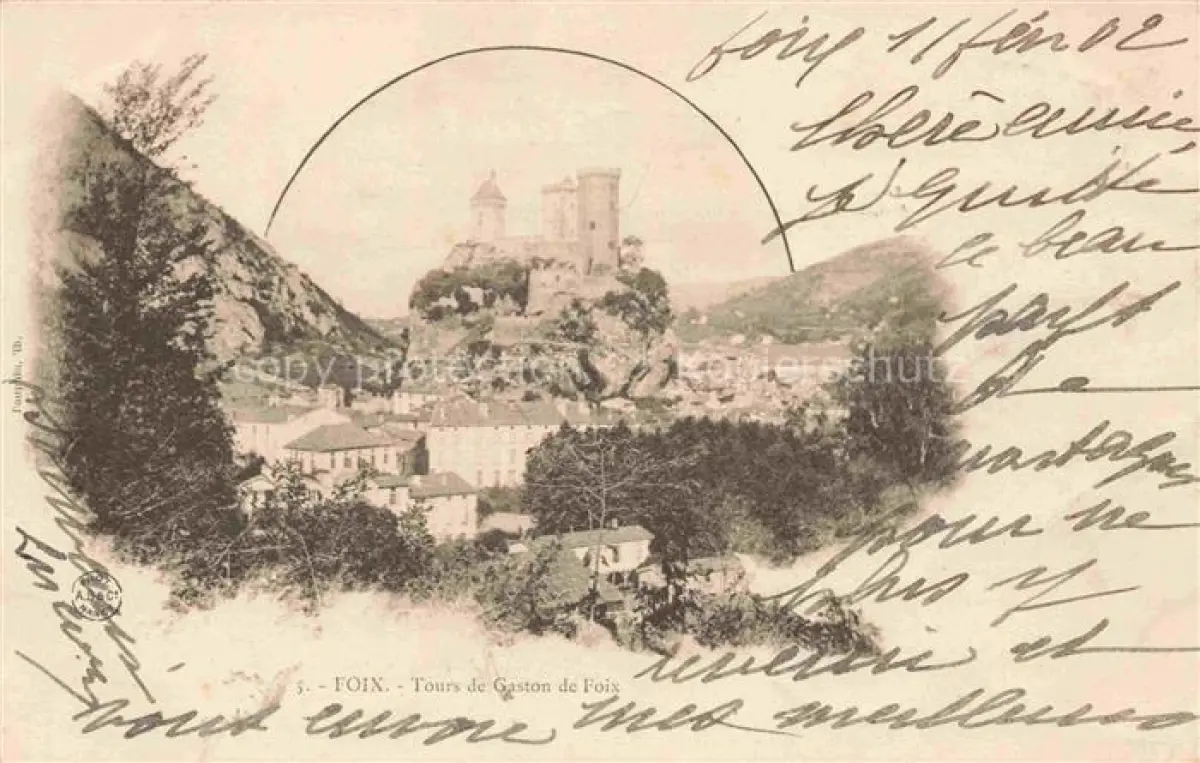 foix 11 fév 02
Chère amie
Je quitte
le beau
pays
de
pour ne
plus y
revenir et
vous envoie mes meilleurs
5. - FOIX. - Tours de Gaston de Foix
copy protection Kopierschutz